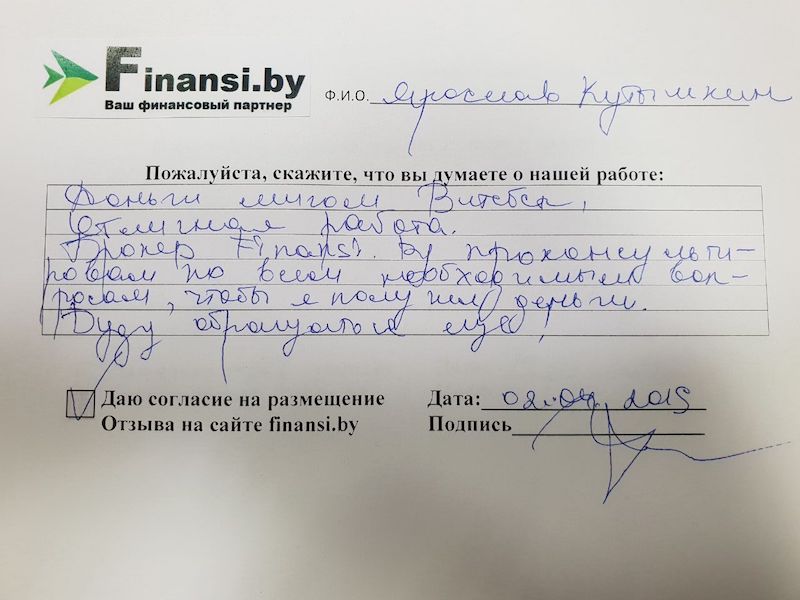 Finansi.by
Ваш финансовый партнер
Ф.И.О. Ярослав Кутылкин
Пожалуйста, скажите, что вы думаете о нашей работе:
Деньги мигом Витебск,
Отличная работа.
Брокер Finansi.by проконсульти-
ровал по всем необходимым воп-
росам, чтобы я получил деньги.
Буду обращаться еще!
Даю согласие на размещение
Отзыва на сайте finansi.by
Дата: 02.04.2019
Подпись